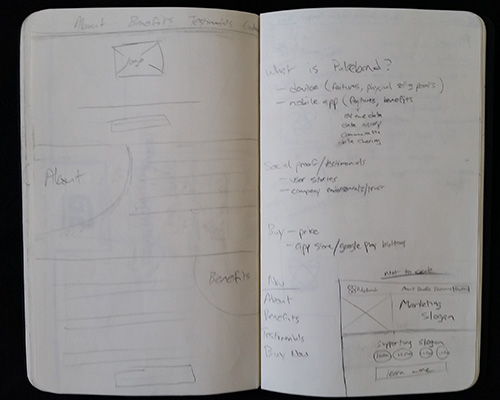 About Benefits Testimonials
logo
About
Benefits
What is Pulseband?
- device (features, physical selling points)
- mobile app (features, benefits
data
data
data sharing
Social proof/testimonials
- user stories
- company endorsements/trust
Buy - price
- app store/google play buttons
Not to scale
Nav
About
Benefits
Testimonials
Buy Now
About
Marketing
Slogan
Supporting slogan
learn more